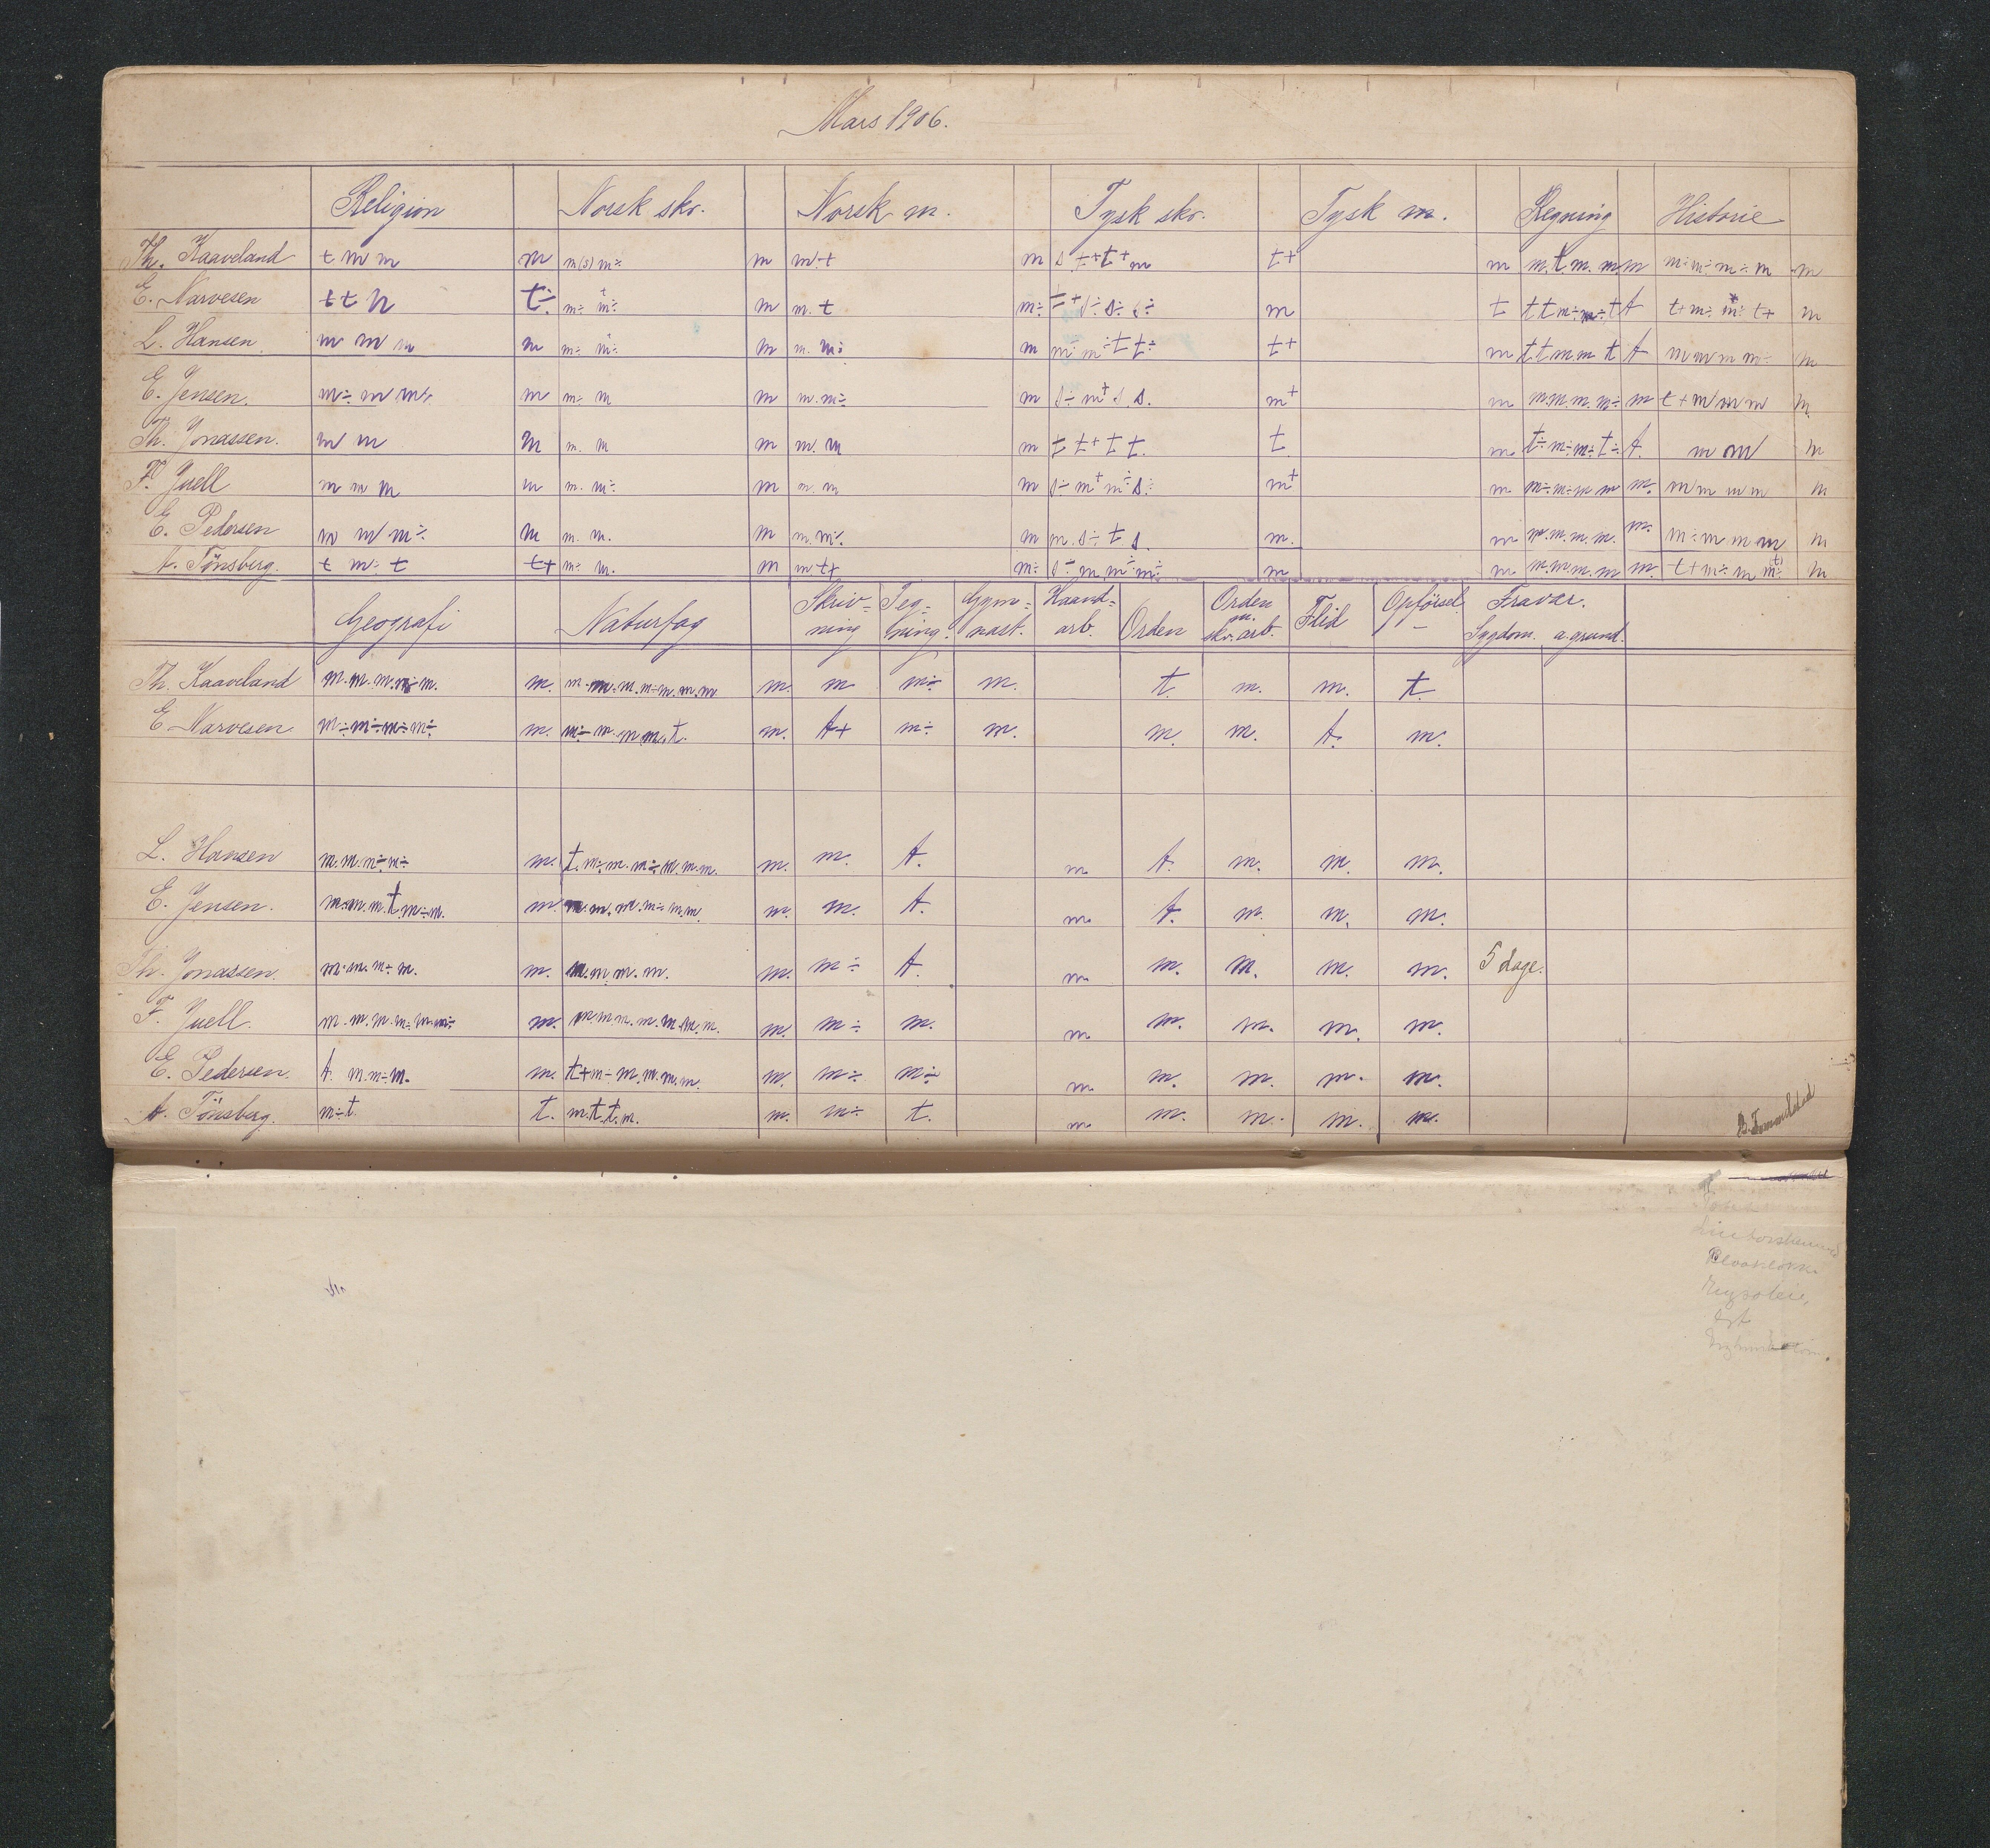 Mars 1906.
Religion Norsk skr. Norsk m. Tysk skr. Tysk m. Regning Historie
Th. Kaaveland t m m m m(s) m÷ m m÷t m s t+t+m t+ m m.tm.m.m m÷m÷m÷m m
E. Narvesen t t m t÷ m÷ m÷ m m. t m÷ t+s÷s÷s÷ m t t t m÷m÷t t t+m÷m÷t+ m
L. Hansen m m m m m÷ m÷ m m. m÷ m m m÷t t÷ t+ m t t m m t t m m m m÷ m
E. Jensen. m÷ m m÷ m m÷ m m m. m÷ m s÷ m+ s. s. m+ m m.m.m.m÷ m t+m m m m
Th. Jonassen. m m m m. m m m. m m t t+ t t. t m t÷m÷m÷t÷ t. m m m
F. Juell m m m m m. m÷ m m. m m s÷ m+ m÷ s÷ m+ m m÷m÷m m m. m m m m m
E. Pedersen m m m÷ m m. m. m m. m÷ m m. s÷ t s. m. m m.m.m.m. m. m÷m m m m
A. Tönsberg. t m÷ t t+ m÷ m. m m t+ m÷ s÷ m m÷ m÷ m m m.m.m.m m. t+m÷m m÷ m
Geografi Naturfag Skriv= Teg= Gym= Haand= Orden Orden Flid Opförsel Fravær.
ning ning. nast. arb. m. skr. arb. Sygdom. a. grund.
Th. Kaaveland m.m.m.m÷m. m. m. m m÷ m. t. m. m. t.
E. Narvesen m÷m÷m÷m÷ m. m÷ m. m m. t. m. t+ m÷ m. m. m. t. m.
L. Hansen m.m.m÷m÷ m. t.m÷m.m÷m.m.m. m. m. t. m t. m. m. m.
E. Jensen. m.m.m.t.m÷m. m. m.m.m.m÷m.m. m. m. t. m t. m. m. m.
Th. Jonassen. m.m.m÷m. m. m.m m. m. m. m÷ t. m m. m. m. m. 5 dage.
F. Juell. m.m.m.m÷m.m÷ m. m.m.m.m.m.m.m. m. m÷ m. m m. m. m. m.
E. Pedersen. t. m.m÷m. m. t+m÷m.m.m.m. m. m÷ m÷ m m. m. m. m.
A. Tönsberg. m÷t. t. m.t.t.m. m. m÷ t. m m. m. m. m.